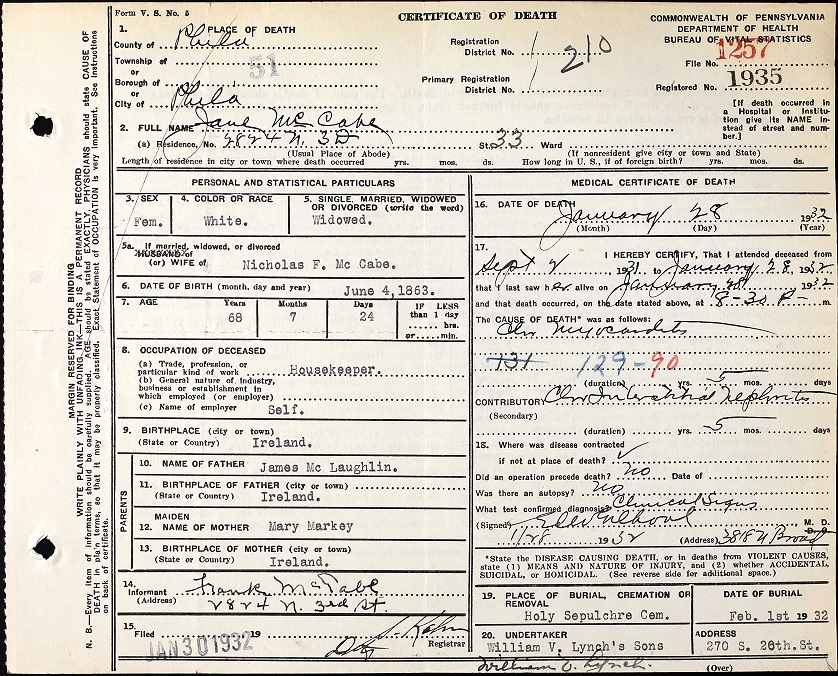 Form V. S. No. 5
CERTIFICATE OF DEATH
COMMONWEALTH OF PENNSYLVANIA
DEPARTMENT OF HEALTH
BUREAU OF VITAL STATISTICS
1. PLACE OF DEATH
County of Phila
Township of
or
Borough of
or
City of Phila
51
Registration District No. 1
210
Primary Registration District No. 1
File No. 1257
Registered No. 1935
[If death occurred in a Hospital or Institution give its NAME instead of street and number.]
2. FULL NAME Jane Mc Cabe
(a) Residence, No. 2824 N. 3D St. 33 Ward
(Usual Place of Abode) (If nonresident give city or town and State)
Length of residence in city or town where death occurred yrs. mos. ds. How long in U. S., if of foreign birth? yrs. mos. ds.
MARGIN RESERVED FOR BINDING
WRITE PLAINLY WITH UNFADING INK—THIS IS A PERMANENT RECORD
N. B.—Every item of information should be carefully supplied. AGE should be stated EXACTLY. PHYSICIANS should state CAUSE OF
DEATH in plain terms, so that it may be properly classified. Exact Statement of OCCUPATION is very important. See instructions
on back of certificate.
PERSONAL AND STATISTICAL PARTICULARS
3. SEX
Fem.
4. COLOR OR RACE
White.
5. SINGLE, MARRIED, WIDOWED OR DIVORCED (write the word)
Widowed.
5a. If married, widowed, or divorced
HUSBAND of
(or) WIFE of Nicholas F. Mc Cabe.
6. DATE OF BIRTH (month, day and year) June 4, 1863.
7. AGE Years Months Days IF LESS than 1 day
68 7 24 hrs. or min.
8. OCCUPATION OF DECEASED
(a) Trade, profession, or particular kind of work Housekeeper.
(b) General nature of industry, business or establishment in which employed (or employer)
(c) Name of employer Self.
9. BIRTHPLACE (city or town)
(State or Country) Ireland.
PARENTS
10. NAME OF FATHER James Mc Laughlin.
11. BIRTHPLACE OF FATHER (city or town)
(State or Country) Ireland.
MAIDEN
12. NAME OF MOTHER Mary Markey
13. BIRTHPLACE OF MOTHER (city or town)
(State or Country) Ireland.
14.
Informant Frank McCabe
(Address) 2824 N. 3rd St.
15.
Filed 19
JAN 30 1932
Registrar
MEDICAL CERTIFICATE OF DEATH
16. DATE OF DEATH January 28 1932
(Month) (Day) (Year)
17. I HEREBY CERTIFY, That I attended deceased from
Sept 2 1931 to January 28 1932
that I last saw her alive on January 28 1932
and that death occurred, on the date stated above, at 8-30 P- m.
The CAUSE OF DEATH* was as follows:
Chr Myocarditis
131 129-90
(duration) yrs. 5 mos. days
CONTRIBUTORY Chr Interstitial Nephritis
(Secondary)
(duration) yrs. 5 mos. days
18. Where was disease contracted
if not at place of death?
Did an operation precede death? no Date of
Was there an autopsy? no
What test confirmed diagnosis? Clinical Signs
(Signed) M. D.
D. O.
1/28 1932 (Address) 3818 N Broad
*State the DISEASE CAUSING DEATH, or in deaths from VIOLENT CAUSES, state (1) MEANS AND NATURE OF INJURY, and (2) whether ACCIDENTAL, SUICIDAL, or HOMICIDAL. (See reverse side for additional space.)
19. PLACE OF BURIAL, CREMATION OR REMOVAL
Holy Sepulchre Cem.
DATE OF BURIAL
Feb. 1st 1932
20. UNDERTAKER
William V. Lynch's Sons
ADDRESS
270 S. 20th. St.
William V. Lynch.
(Over)